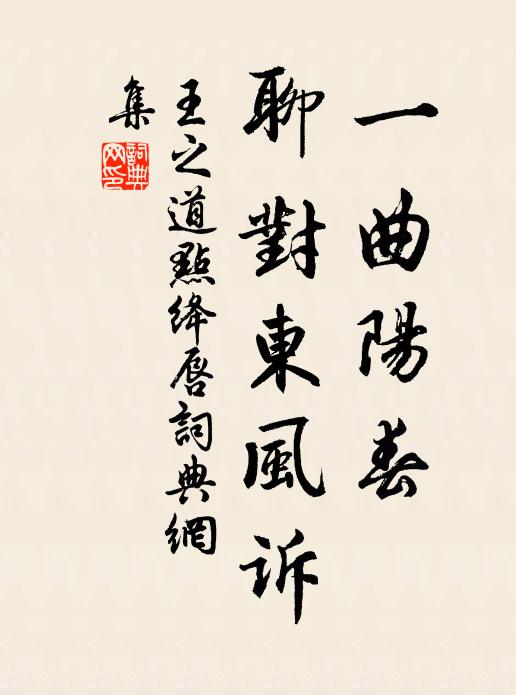 一曲陽春
聊對東風訴
王之道點絳唇詞典網
集
詞典網印